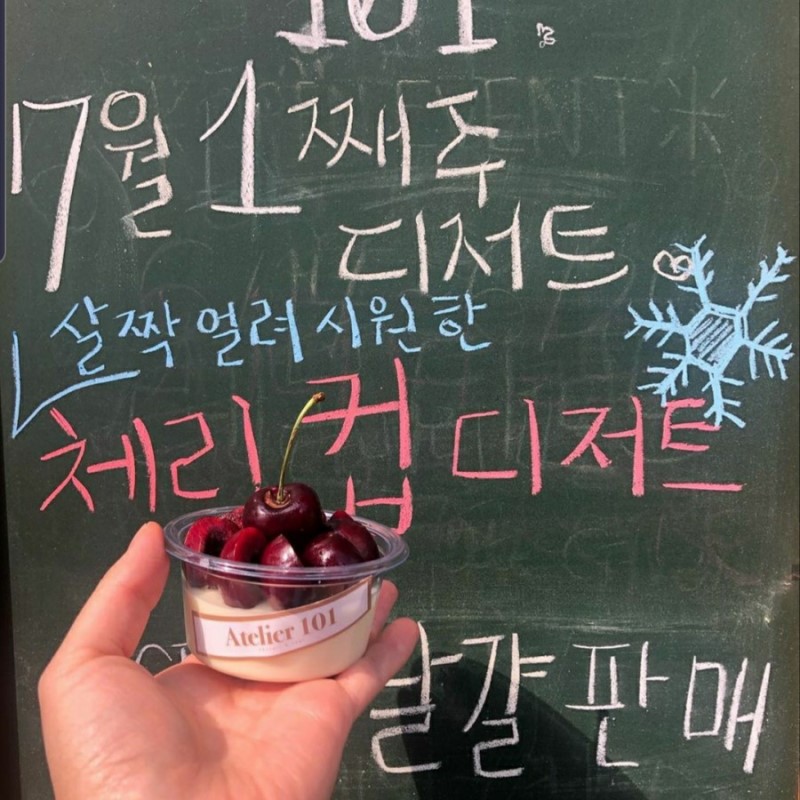 101.
7월 1째주
디저트.
살짝 얼려 시원한
체리컵 디저트
Atelier 101
달걀 판매